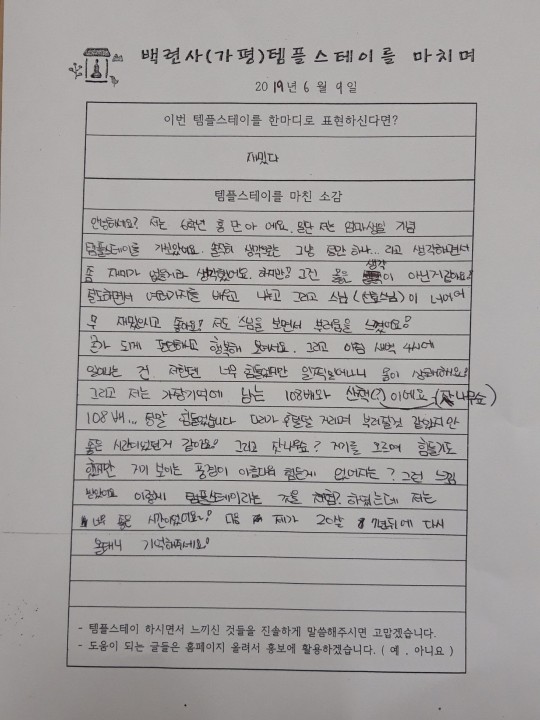 백련사(가평)템플스테이를 마치며
2019년 6월 9일
이번 템플스테이를 한마디로 표현하신다면?
재밌다
템플스테이를 마친 소감
안녕하세요? 저는 6학년 홍 안아 에요. 일단 저는 엄마생일 기념
템플스테이를 가게되었어요. 솔직히 생각으로는 그냥 절만 하나... 라고 생각하면서
좀 재미가 없을거라 생각했어요. 하지만? 그건 옳은 생각이 아닌거같아요?
절도하면서 여러가지를 배우고 나누고 그리고 스님(선효스님)이 너어어
무 재밌으시고 좋아요? 저도 스님을 보면서 부러움을 느꼈어요?
뭔가 되게 편안하고 행복해 보여서요. 그리고 아침 새벽 4시에
일어나는 건 저한텐 너무 힘들었지만 일찍일어나니 몸이 상쾌해요?
그리고 저는 가장기억에 남는 108배와 산책(?)이에요 (잣나무숲)
108배... 정말 힘들었습니다 다리가 후덜덜 거리며 부러질것 같았지만
좋은 시간이었던거 같아요? 그리고 잣나무숲? 거기를 오르며 힘들기도
했지만 거기 보이는 풍경이 아름다워 힘든게 없어지는? 그런 느낌
받았어요 이렇게 템플스테이라는 것을 체험? 하였는데 저는
너무 좋은 시간이었어요? 다음 제가 20살 7년뒤에 다시
올테니 기억해주세요?
- 템플스테이 하시면서 느끼신 것들을 진솔하게 말씀해주시면 고맙겠습니다.
- 도움이 되는 글들은 홈페이지 올려서 홍보에 활용하겠습니다. ( 예 , 아니요 )